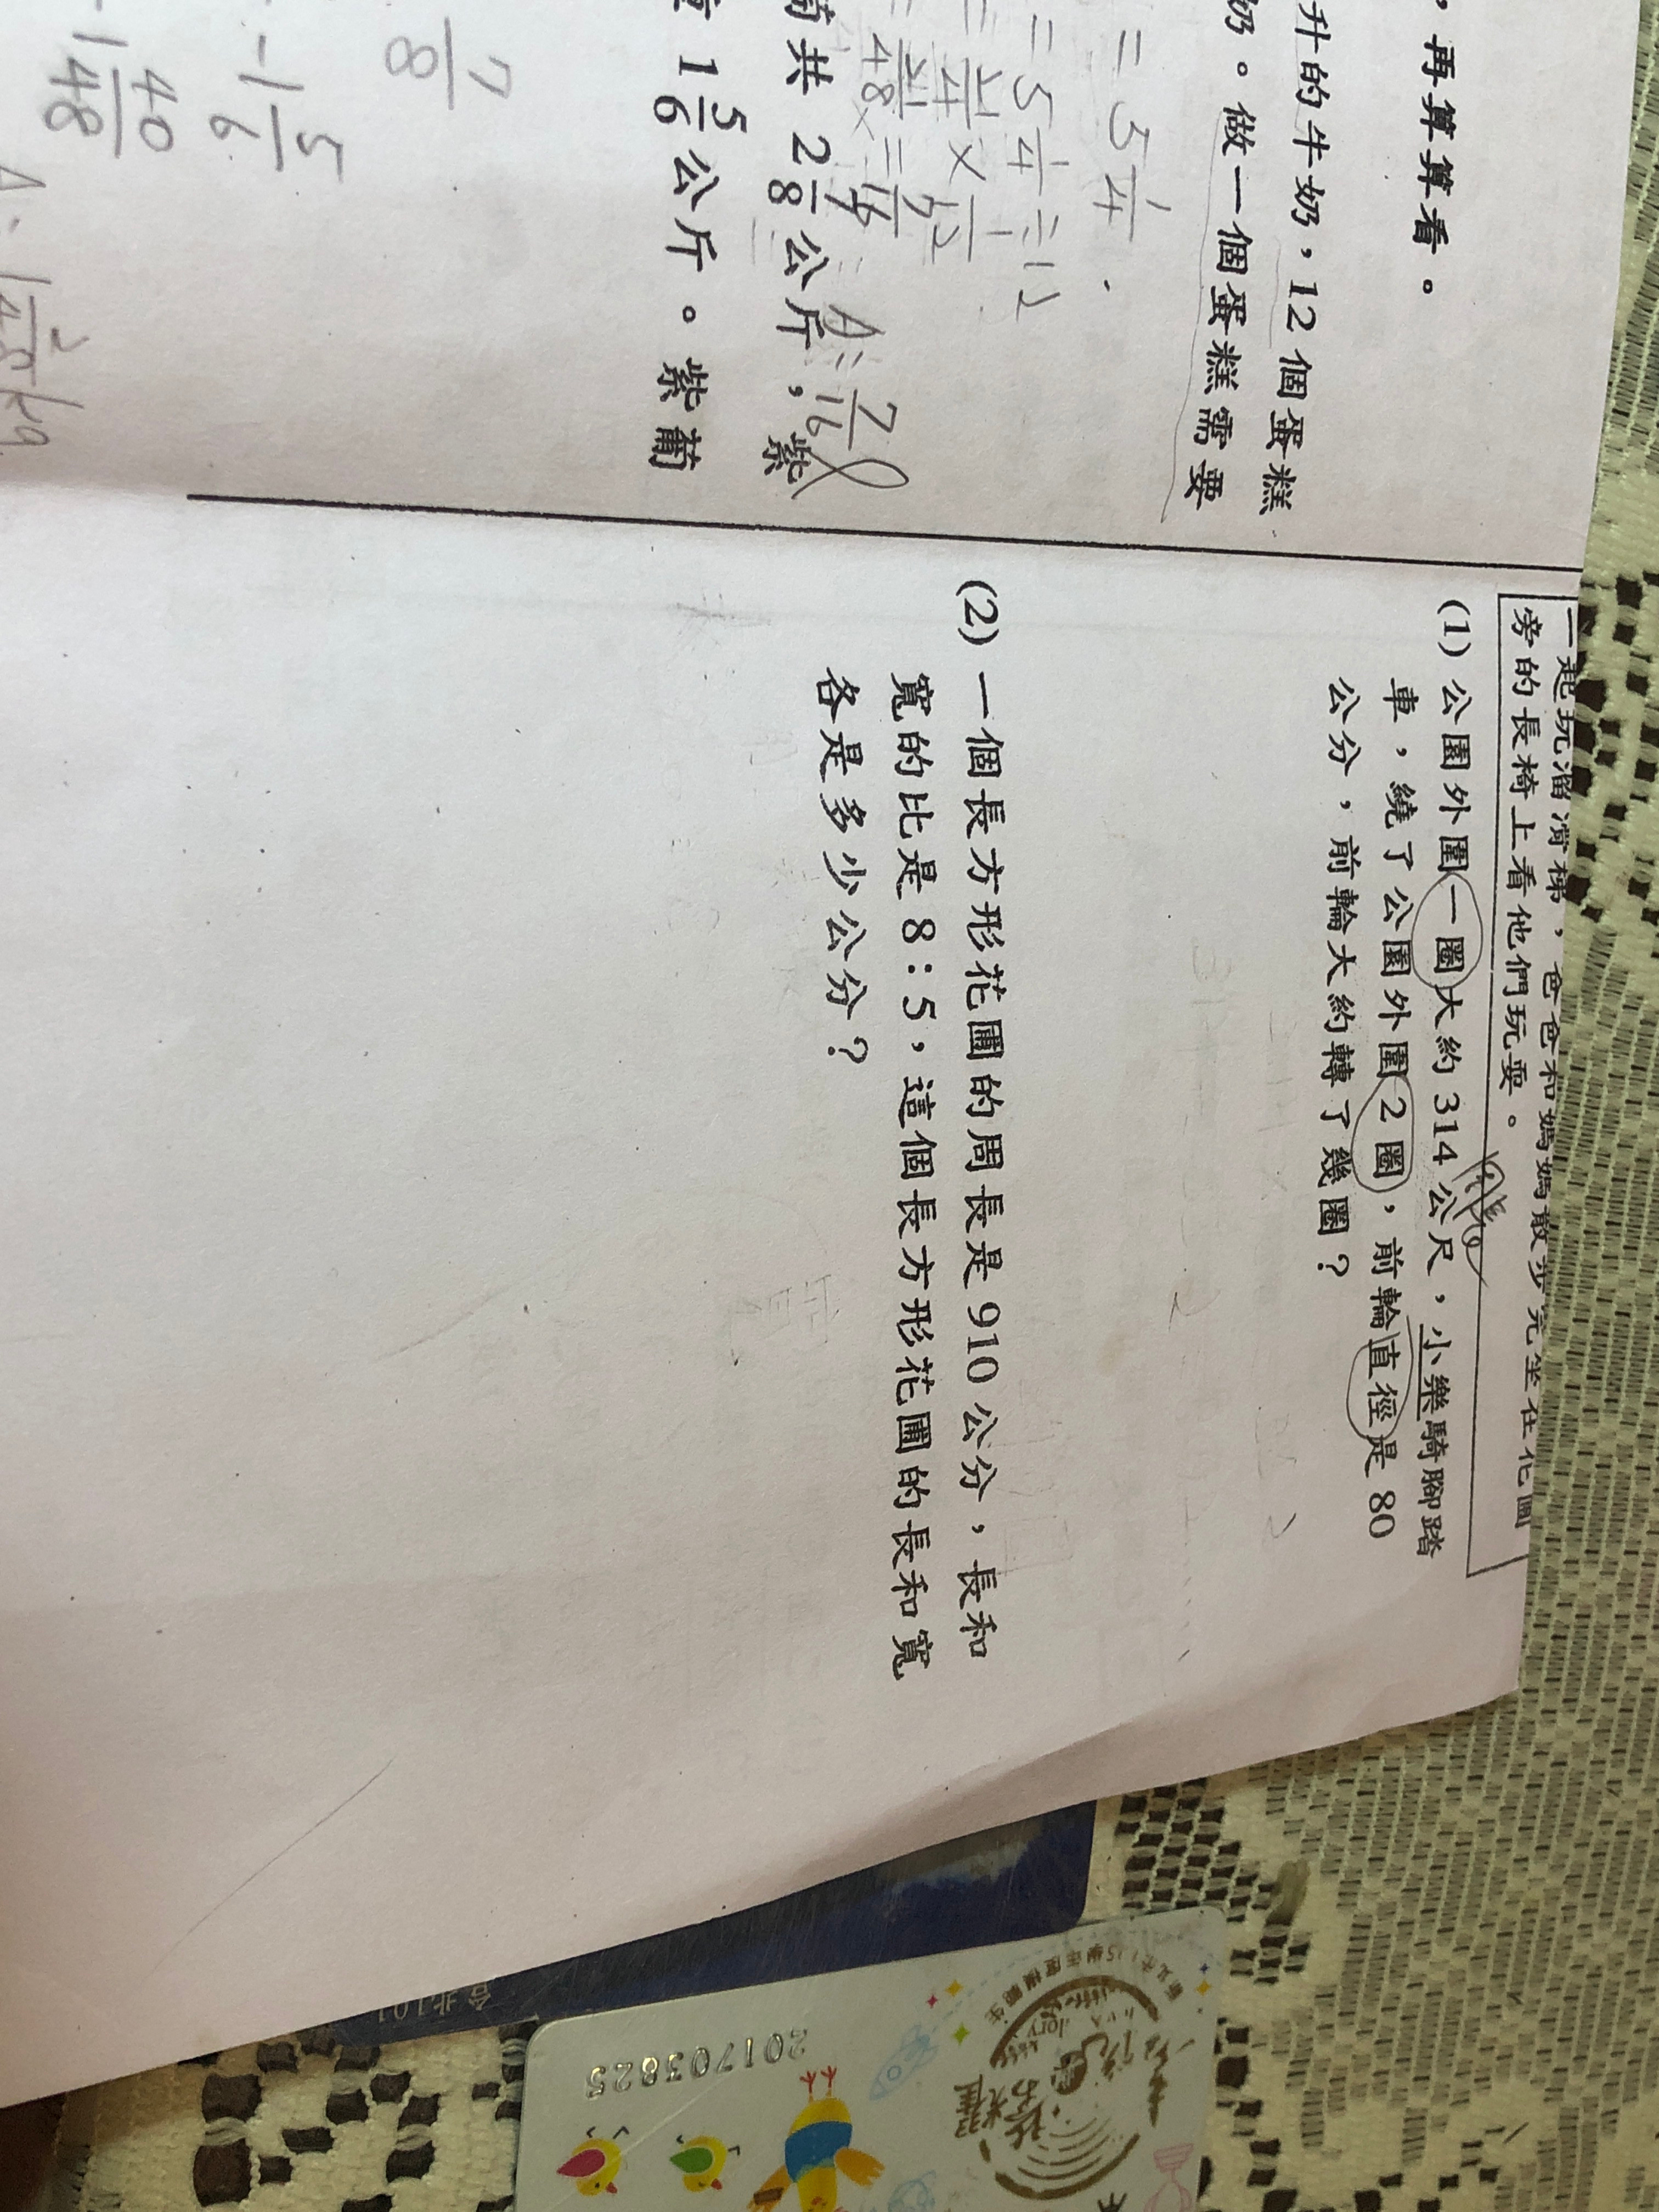 ，再算算看。
升的牛奶，12個蛋糕
奶。做一個蛋糕需要
= 5 1/4
= 5 1/4 ÷ 12
A: 7/16
萄共 2 7/8 公斤，紫
1 5/6 公斤。紫葡
7/8
- 1 5/6
- 1 40/48
A: 1 2/48 kg
一起玩溜滑梯，爸爸和媽媽散步完坐在花圃
旁的長椅上看他們玩耍。
(1) 公園外圍一圈大約 314 公尺，小樂騎腳踏
車，繞了公園外圍 2 圈，前輪直徑是 80
公分，前輪大約轉了幾圈？
(2) 一個長方形花圃的周長是 910 公分，長和
寬的比是 8：5，這個長方形花圃的長和寬
各是多少公分？
台北101
201703825